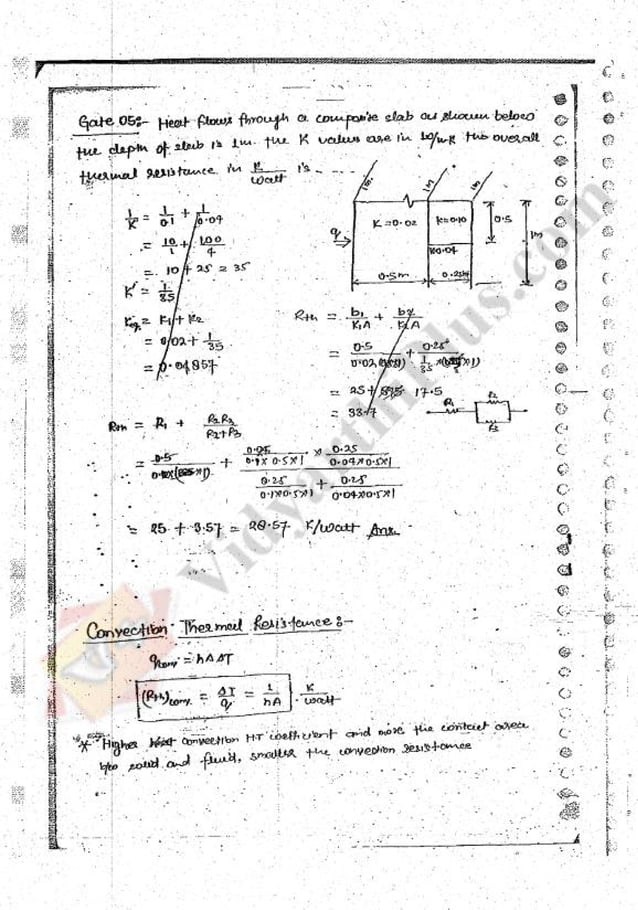 Gate 05:- Heat flows through a composite slab as shown below
the depth of slab is 1m. the K values are in W/mK the overall
thermal resistance in K/Watt is
1m 1m 1m
1/K = 1/0.1 + 1/0.04
= 10/1 + 100/4
= 10 + 25 = 35
K' = 1/35
Keq = K1 + K2
= 0.02 + 1/35
= 0.04857
q K=0.02 K=0.10 0.5 1m
K0.04
0.5m 0.25m
Rth = b1/K1A + b2/K2A
= 0.5/0.02 + 0.25/
= 25 + 17.5
= 33.7
R1 R2
R3
Rth = R1 + R2R3/R2+R3
= 0.5/ + 0.25/0.1×0.5×1 × 0.25/0.04×0.5×1
0.25/0.1×0.5×1 + 0.25/0.04×0.5×1
= 25 + 3.57 = 28.57 K/Watt Ans
Convection Thermal Resistance:-
qconv = hAΔT
(Rth)conv. = ΔT/q = 1/hA K/Watt
* Higher convection HT coefficient and more the contact area
b/w solid and fluid, smaller the convection resistance
VidyarthiPlus.com